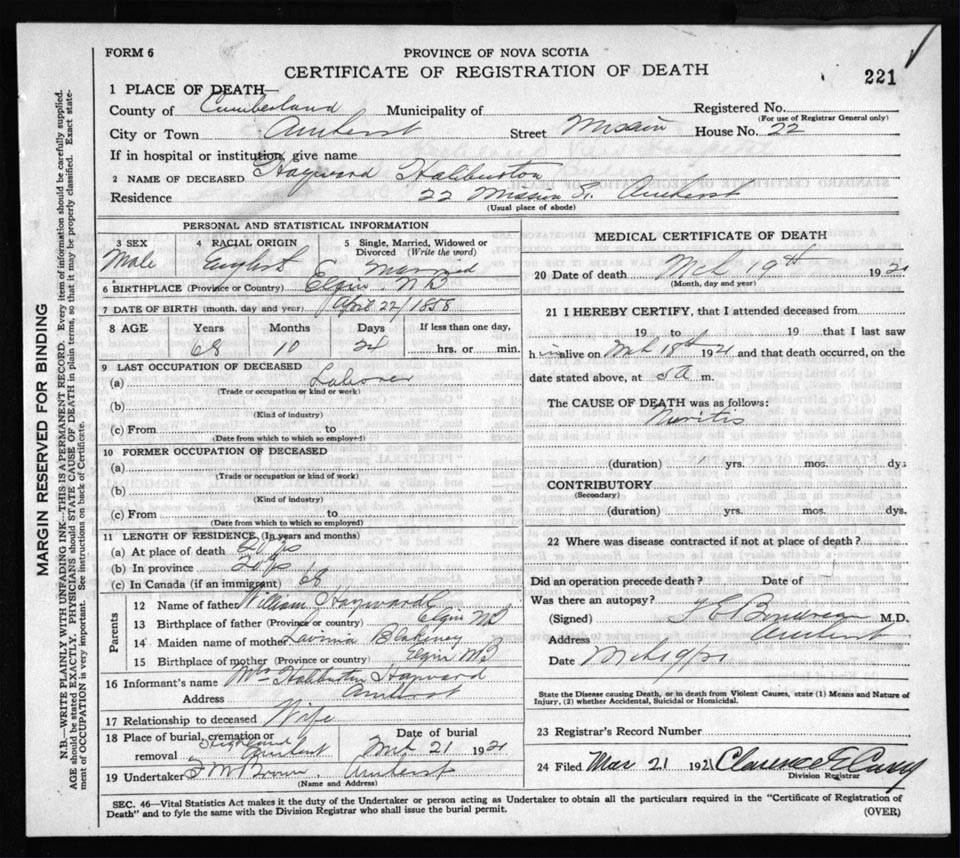 FORM 6
PROVINCE OF NOVA SCOTIA
CERTIFICATE OF REGISTRATION OF DEATH
221
1 PLACE OF DEATH—
County of Cumberland Municipality of Registered No.
(For use of Registrar General only)
City or Town Amherst Street Mission House No. 22
If in hospital or institution, give name
2 NAME OF DECEASED Hayward Haliburton
Residence 22 Mission St. Amherst
(Usual place of abode)
PERSONAL AND STATISTICAL INFORMATION
3 SEX 4 RACIAL ORIGIN 5 Single, Married, Widowed or Divorced (Write the word)
Male English Married
6 BIRTHPLACE (Province or Country) Elgin N B
7 DATE OF BIRTH (month, day and year) April 22/1858
8 AGE Years Months Days If less than one day,
10 24 hrs. or min.
9 LAST OCCUPATION OF DECEASED
(a) Laborer
(Trade or occupation or kind or work)
(b)
(Kind of industry)
(c) From to
(Date from which to which so employed)
10 FORMER OCCUPATION OF DECEASED
(a)
(Trade or occupation or kind of work)
(b)
(Kind of industry)
(c) From to
(Date from which to which so employed)
11 LENGTH OF RESIDENCE (In years and months)
(a) At place of death 20 yrs
(b) In province 20 yrs
(c) In Canada (if an immigrant)
Parents
12 Name of father William Hayward
13 Birthplace of father (Province or country) Elgin N B
14 Maiden name of mother Lavinia Blakeney
15 Birthplace of mother (Province or country) Elgin N B
16 Informant's name Mrs Haliburton Hayward
Address Amherst
17 Relationship to deceased Wife
18 Place of burial, cremation or removal Highland Amherst Date of burial Mch 21 1921
19 Undertaker F W Brown. Amherst
(Name and Address)
MEDICAL CERTIFICATE OF DEATH
20 Date of death Mch 19th 1921
(Month, day and year)
21 I HEREBY CERTIFY, that I attended deceased from
19 to 19 that I last saw
him alive on Mch 18th 1921 and that death occurred, on the
date stated above, at 5 a m.
The CAUSE OF DEATH was as follows:
Neuritis
(duration) yrs. mos. dys
CONTRIBUTORY
(Secondary)
(duration) yrs. mos. dys.
22 Where was disease contracted if not at place of death?
Did an operation precede death? Date of
Was there an autopsy?
(Signed) M.D.
Address Amherst
Date
State the Disease causing Death, or in death from Violent Causes, state (1) Means and Nature of
Injury, (2) whether Accidental, Suicidal or Homicidal.
23 Registrar's Record Number
24 Filed Mar 21 1921 Clarence E Casey
Division Registrar
SEC. 46—Vital Statistics Act makes it the duty of the Undertaker or person acting as Undertaker to obtain all the particulars required in the "Certificate of Registration of
Death" and to fyle the same with the Division Registrar who shall issue the burial permit.
(OVER)
MARGIN RESERVED FOR BINDING
N.B.—WRITE PLAINLY WITH UNFADING INK—THIS IS A PERMANENT RECORD. Every item of information should be carefully supplied.
AGE should be stated EXACTLY. PHYSICIANS should STATE CAUSE OF DEATH in plain terms, so that it may be properly classified. Exact state-
ment of OCCUPATION is very important. See instructions on back of Certificate.